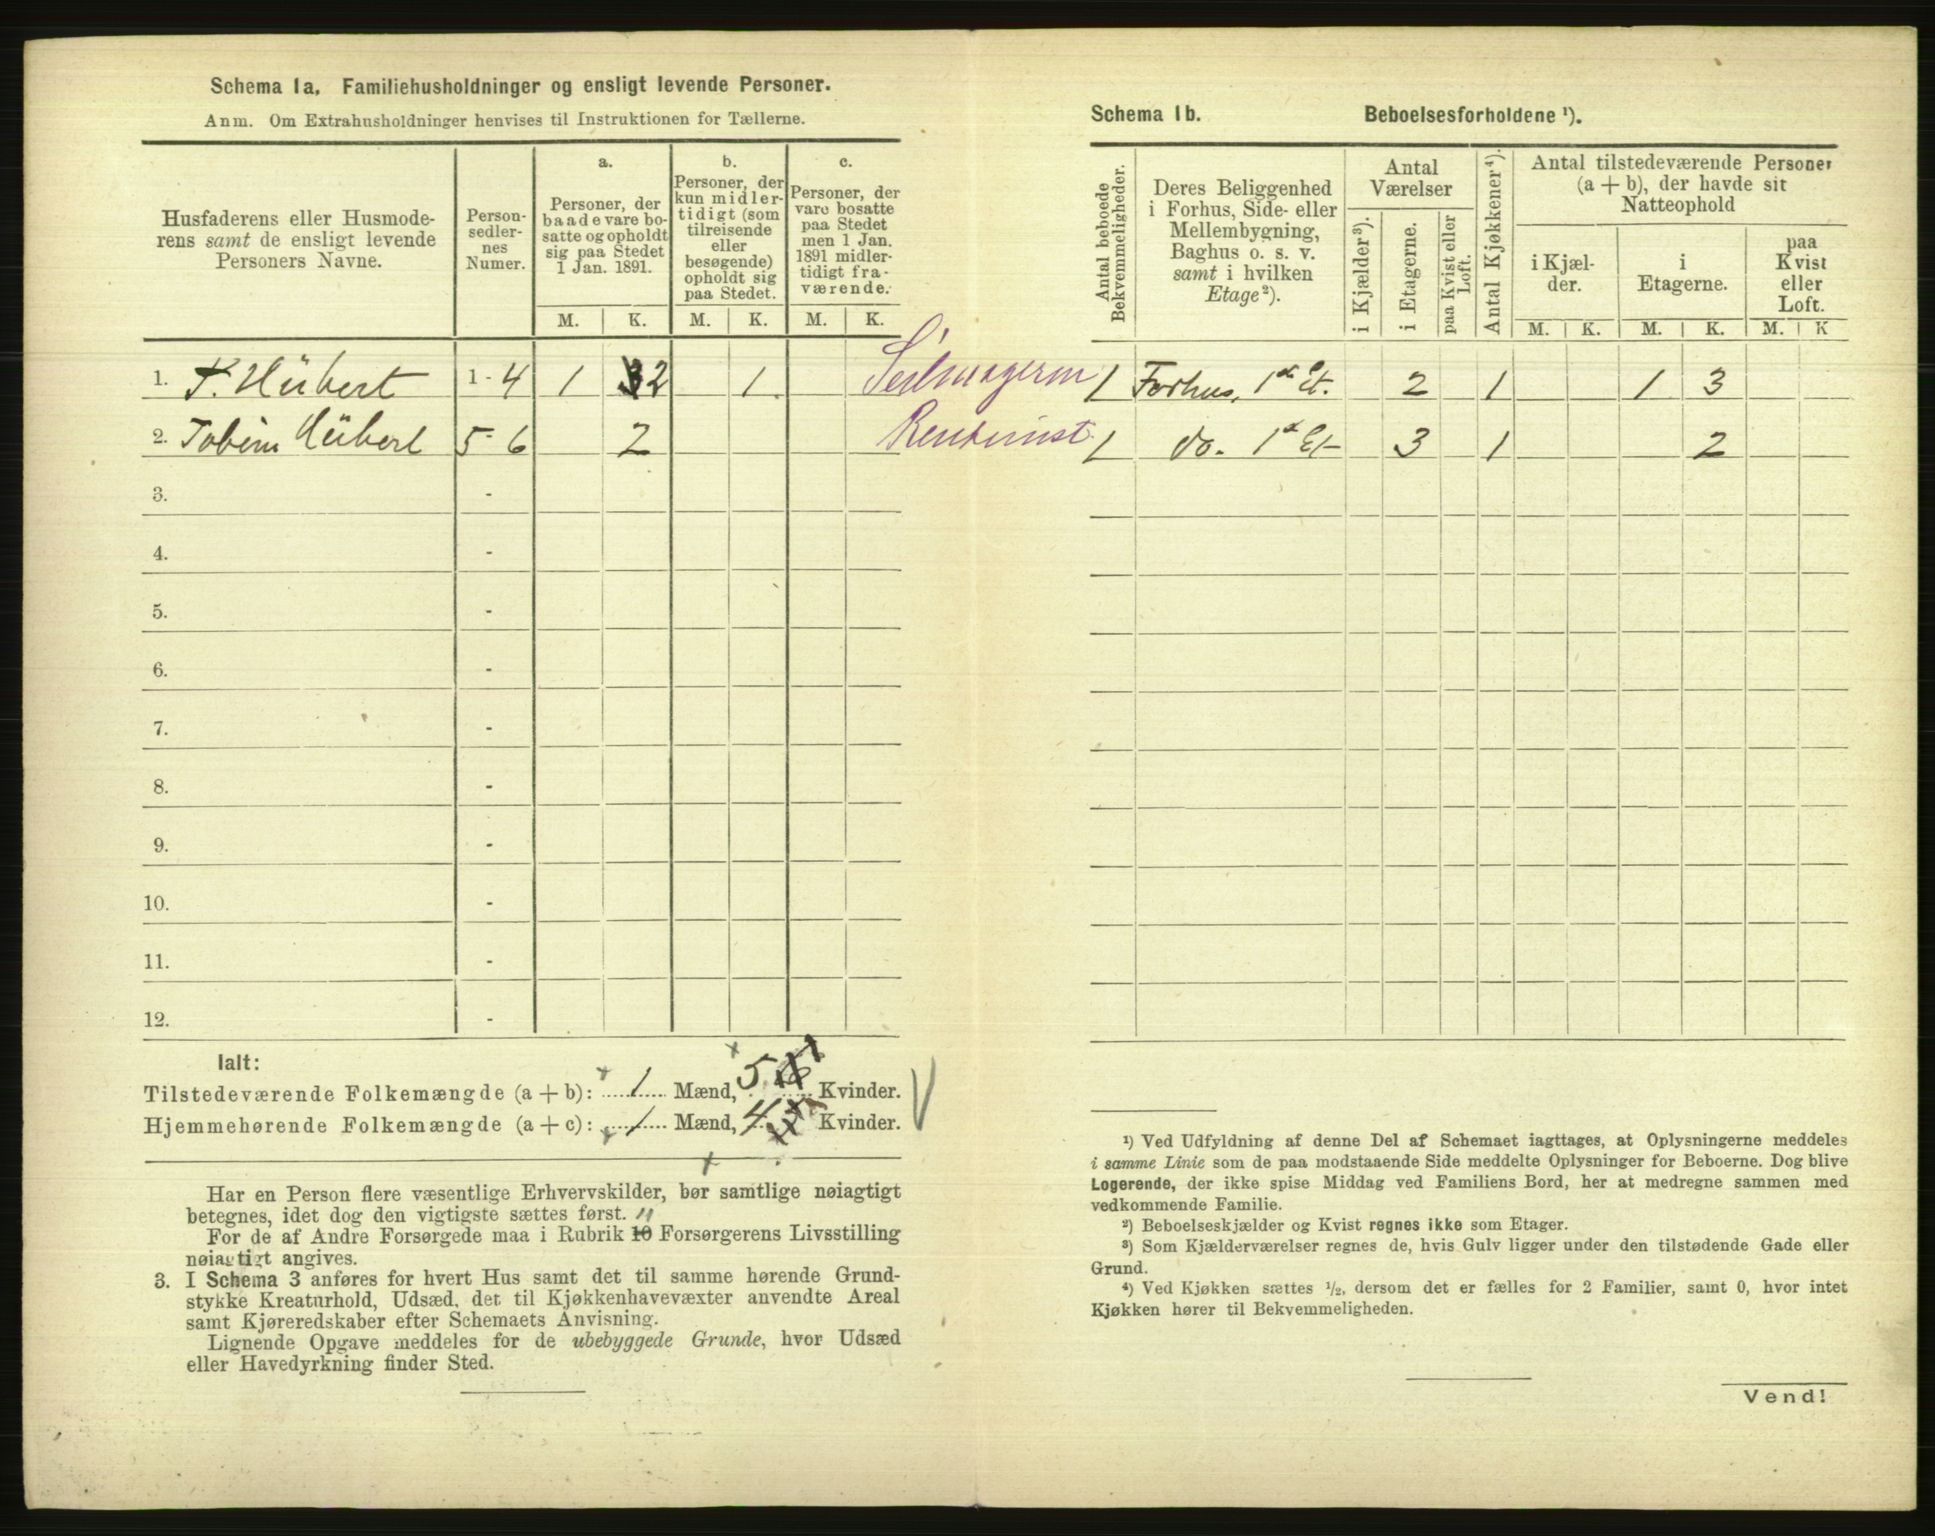 Schema 1a. Familiehusholdninger og ensligt levende Personer.
Anm. Om Extrahusholdninger henvises til Instruktionen for Tællerne.
Husfaderens eller Husmode-
rens samt de ensligt levende
Personers Navne.
Person-
sedler-
nes
Numer.
a.
Personer, der
baade vare bo-
satte og opholdt
sig paa Stedet
1 Jan. 1891.
b.
Personer, der
kun midler-
tidigt (som
tilreisende
eller
besøgende)
opholdt sig
paa Stedet.
c.
Personer, der
vare bosatte
paa Stedet
men 1 Jan.
1891 midler-
tidigt fra-
værende.
M. K. M. K. M. K.
1. F. Hübert 1 - 4 1 2 1
2. Hübert 5 - 6 2
3. -
4. -
5. -
6. -
7. -
8. -
9. -
10. -
11. -
12. -
Ialt:
Tilstedeværende Folkemængde (a + b): 1 Mænd, 5 Kvinder.
Hjemmehørende Folkemængde (a + c): 1 Mænd, 4 Kvinder.
Har en Person flere væsentlige Erhvervskilder, bør samtlige nøiagtigt
betegnes, idet dog den vigtigste sættes først. 11
For de af Andre Forsørgede maa i Rubrik 10 Forsørgerens Livsstilling
nøiagtigt angives.
3. I Schema 3 anføres for hvert Hus samt det til samme hørende Grund-
stykke Kreaturhold, Udsæd, det til Kjøkkenhavevæxter anvendte Areal
samt Kjøreredskaber efter Schemaets Anvisning.
Lignende Opgave meddeles for de ubebyggede Grunde, hvor Udsæd
eller Havedyrkning finder Sted.
Schema 1b. Beboelsesforholdene ¹).
Antal beboede
Bekvemmeligheder.
Deres Beliggenhed
i Forhus, Side- eller
Mellembygning,
Baghus o. s. v.
samt i hvilken
Etage²).
Antal
Værelser
i Kjælder³).
i Etagerne.
paa Kvist eller
Loft.
Antal Kjøkkener⁴).
Antal tilstedeværende Personer
(a + b), der havde sit
Natteophold
i Kjæl-
der.
i
Etagerne.
paa
Kvist
eller
Loft.
M. K. M. K. M. K
Seilmagerm 1 Forhus, 1ste Et. 2 1 1 3
Rentenist 1 do. 1ste Et 3 1 2
¹) Ved Udfyldning af denne Del af Schemaet iagttages, at Oplysningerne meddeles
i samme Linie som de paa modstaaende Side meddelte Oplysninger for Beboerne. Dog blive
Logerende, der ikke spise Middag ved Familiens Bord, her at medregne sammen med
vedkommende Familie.
²) Beboelseskjælder og Kvist regnes ikke som Etager.
³) Som Kjælderværelser regnes de, hvis Gulv ligger under den tilstødende Gade eller
Grund.
⁴) Ved Kjøkken sættes ½, dersom det er fælles for 2 Familier, samt 0, hvor intet
Kjøkken hører til Bekvemmeligheden.
Vend!